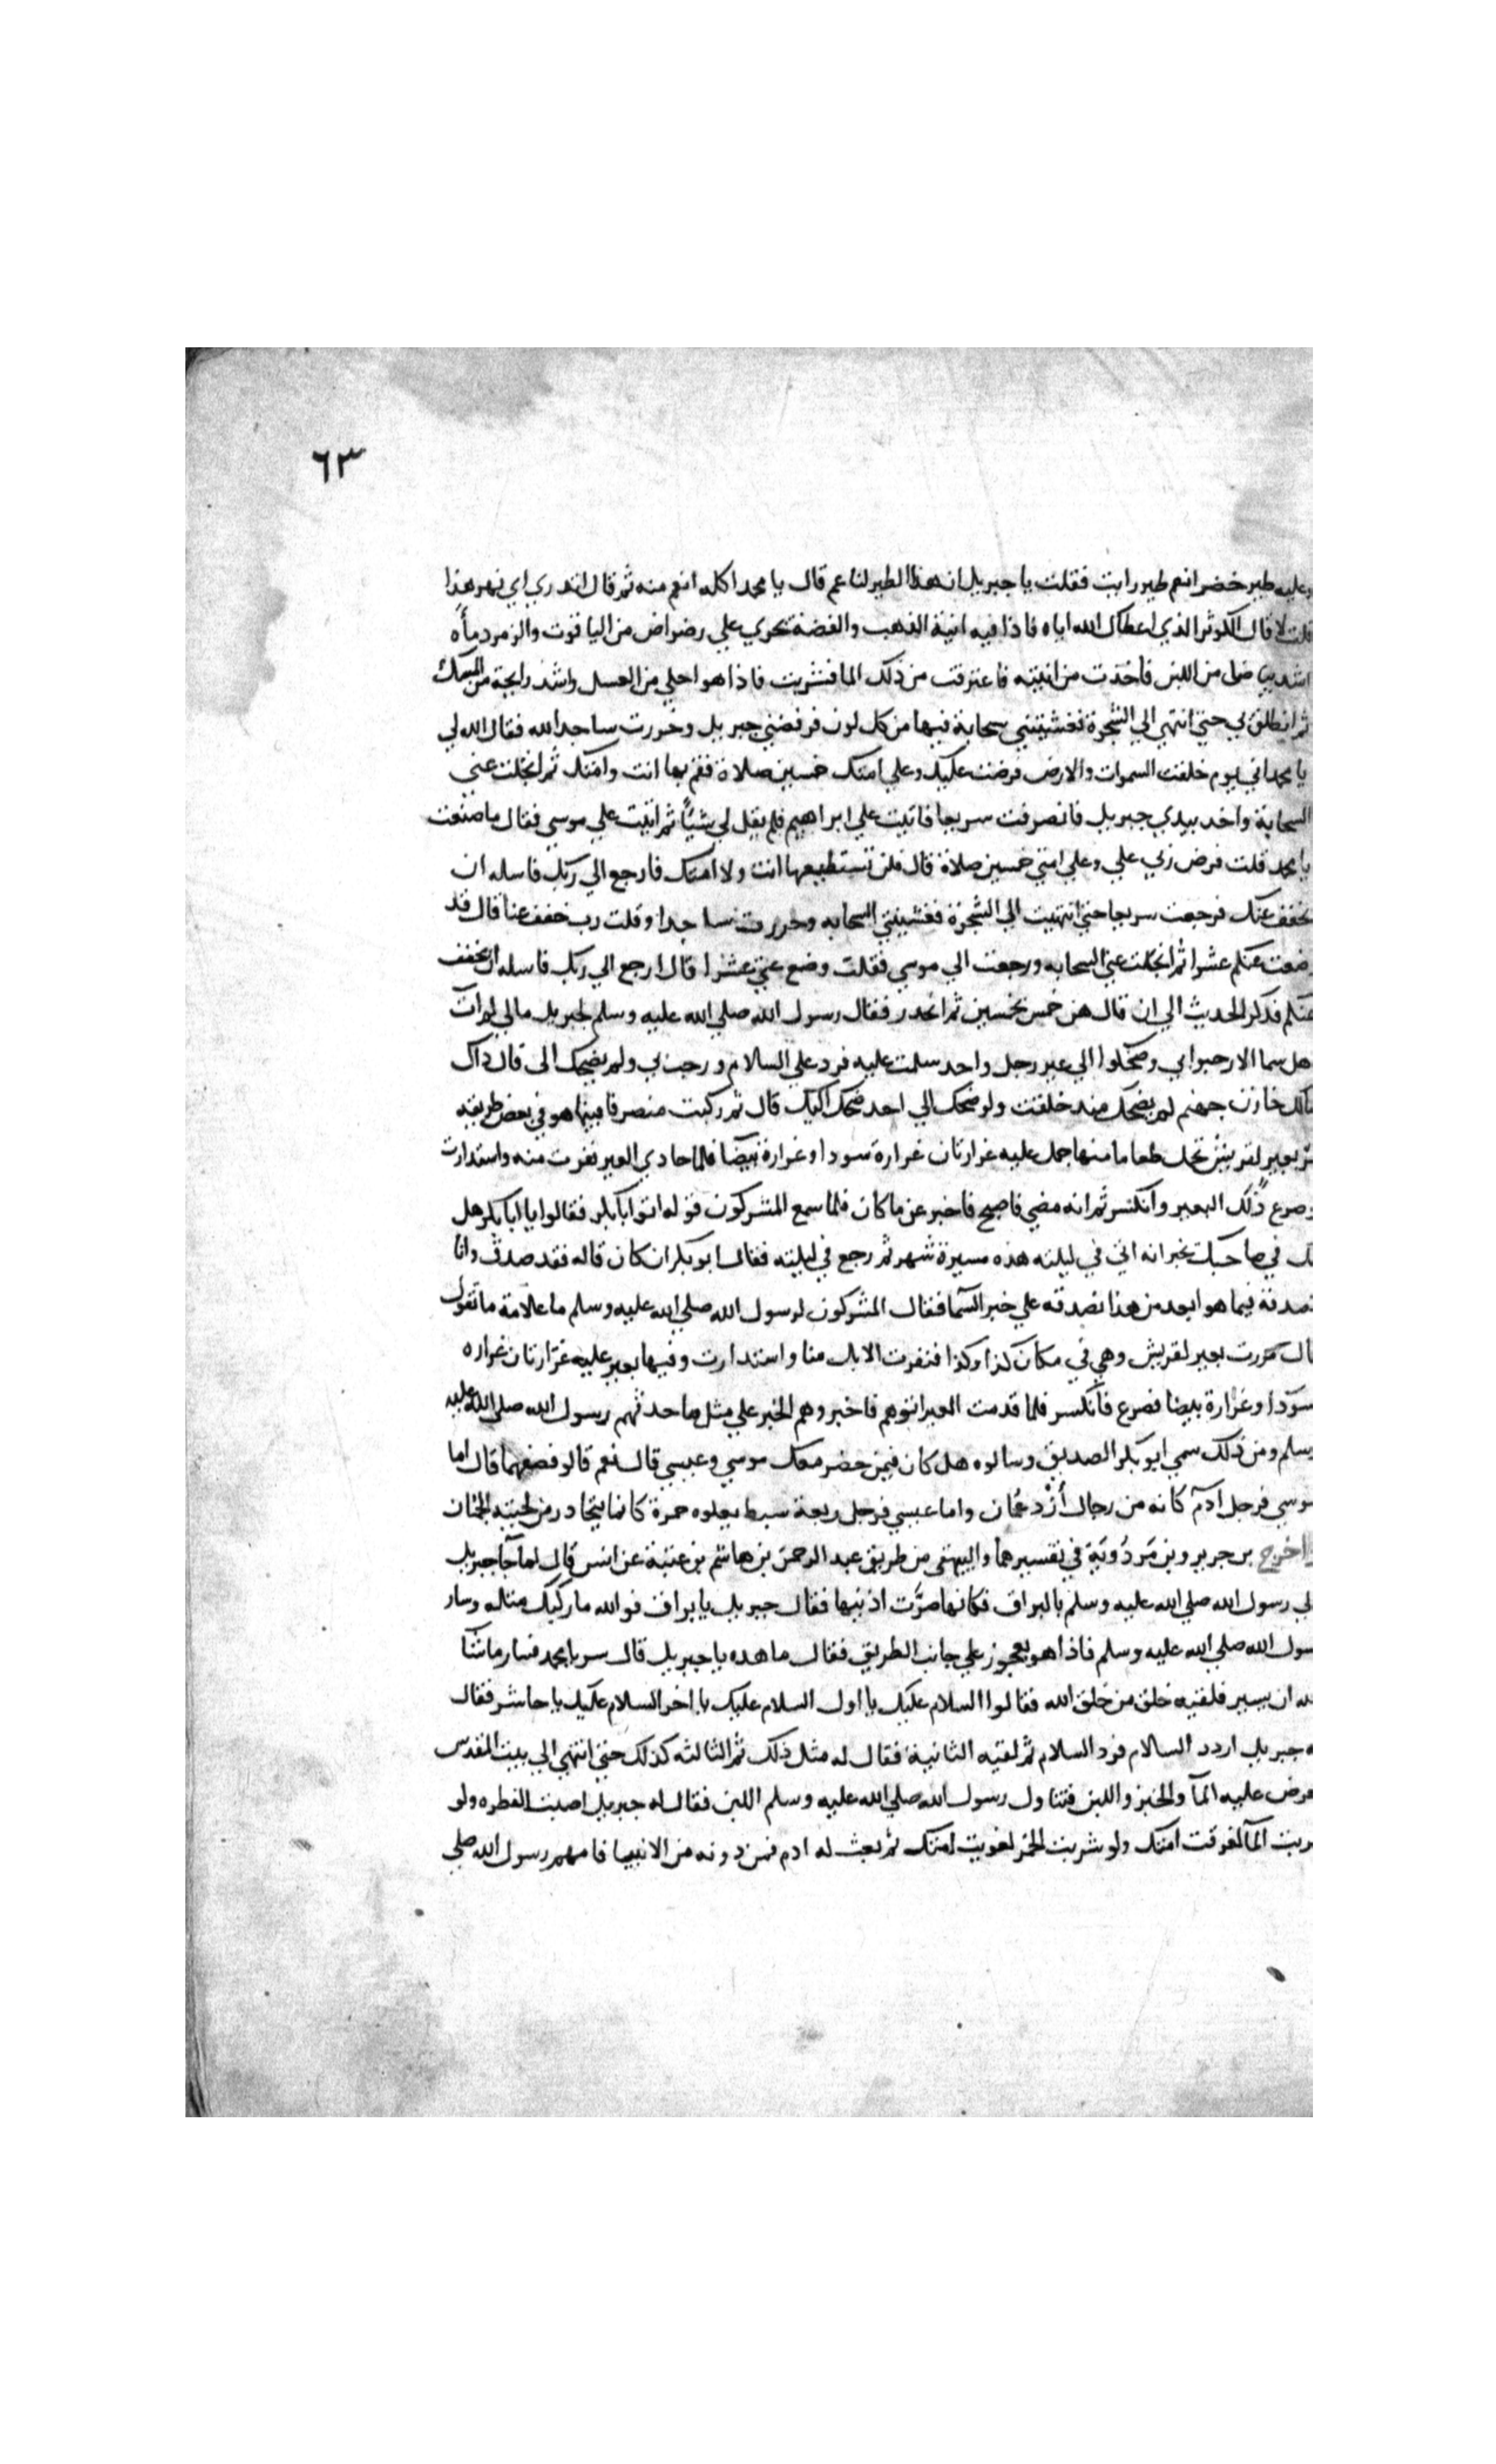 ٦٣
وعليه طير خضر انعم طير رايت فقلت يا جبريل ان هذا الطير لناعم قال يا محمد اكله انعم منه ثم قال اتدري اي نهر هذا
قلت لا قال الكوثر الذي اعطاك الله اياه فاذا فيه انية الذهب والفضة تجري علي رضراض من الياقوت والزمرد ماؤه
اشد بياضا من اللبن فاخذت من انيته فاغترفت من ذلك الما فشربت فاذا هو احلي من العسل واشد رايحة من المسك
ثم انطلق بي حتي انتهي الي الشجرة فغشيتني سحابة فيها من كل لون فرفضني جبريل وخررت ساجدا لله فقال الله لي
يا محمد اني يوم خلقت السموات والارض فرضت عليك وعلي امتك خمسين صلاة فقم بها انت وامتك ثم انجلت عني
السحابة واخد بيدي جبريل فانصرفت سريعا فاتيت علي ابراهيم فلم يقل لي شيئا ثم اتيت علي موسي فقال ما صنعت
يا محمد قلت فرض ربي علي وعلي امتي خمسين صلاة قال فلن تستطيعها انت ولا امتك فارجع الي ربك فاسله ان
يخفف عنك فرجعت سريعا حتي انتهيت الي الشجرة فغشيتني السحابه وخررت ساجدا وقلت رب خفف عنا قال قد
وضعت عنكم عشرا ثم انجلت عني السحابه ورجعت الي موسي فقلت وضع عني عشرا قال ارجع الي ربك فاسله ان يخفف
عنكم فذكر الحديث الي ان قال هن خمس بخمسين ثم انحدر فقال رسول الله صلي الله عليه وسلم لجبريل مالي لم ات
اهل سما الا رحبوا بي وضحكوا الي غير رجل واحد سلمت عليه فرد علي السلام ورحب بي ولم يضحك الي قال ذاك
مالك خازن جهنم لم يضحك منذ خلقت ولو ضحك الي احد ضحك اليك قال ثم ركبت منصرفا فبينما هو في بعض طريقه
مر بعير لقريش تحمل طعاما منها جمل عليه غرارتان غرارة سودا وغرارة بيضا فلما حادي العير نفرت منه واستدارت
وصرع ذلك البعير وانكسر ثم انه مضي فاصبح فاخبر عن ما كان فلما سمع المشركون قوله اتوا ابابكر فقالوا يا ابابكر هل
لك في صاحبك يخبر انه اتي في ليلته هذه مسيرة شهر ثم رجع في ليلته فقال ابو بكر ان كان قاله فقد صدق وانا
نصدقه فيما هو ابعد من هذا نصدقه علي خبر السما فقال المشركون لرسول الله صلي الله عليه وسلم ما علامة ما تقول
قال مررت بعير لقريش وهي في مكان كذا وكذا فنفرت الابل منا واستدارت وفيها بعير عليه غرارتان غراره
سودا وغرارة بيضا فصرع فانكسر فلما قدمت العير اتوهم فاخبروهم الخبر علي مثل ما حدثهم رسول الله صلي الله عليه
وسلم ومن ذلك سمي ابو بكر الصديق وسالوه هل كان فيمن حضر معك موسي وعيسي قال نعم قالو فصفهما قال اما
موسي فرجل ادم كانه من رجال أزد عُمان واما عيسي فرجل ربعة سبط يعلوه حمرة كانما يتحادر من لحيته الجمان
واخرج بن جرير وبن مردويه في تفسيرهما والبيهقي من طريق عبد الرحمن بن هاشم بن عتبة عن انس قال لما جا جبريل
الي رسول الله صلي الله عليه وسلم بالبراق فكانها صرّت اذنيها فقال جبريل يا براق فوالله ما ركبك مثله وسار
رسول الله صلي الله عليه وسلم فاذا هو بعجوز علي جانب الطريق فقال ما هذه يا جبريل قال سر يا محمد فسار ما شا
الله ان يسير فلقيه خلق من خلق الله فقالوا السلام عليك يا اول السلام عليك يا اخر السلام عليك يا حاشر فقال
له جبريل اردد السلام فرد السلام ثم لقيه الثانية فقال له مثل ذلك ثم الثالثه كذلك حتي انتهي الي بيت المقدس
فعرض عليه الما والخمر واللبن فتناول رسول الله صلي الله عليه وسلم اللبن فقال له جبريل اصبت الفطره ولو
شربت الما لغرقت امتك ولو شربت الخمر لغويت امتك ثم بعث له ادم فمن دونه من الانبيا فامهم رسول الله صلي